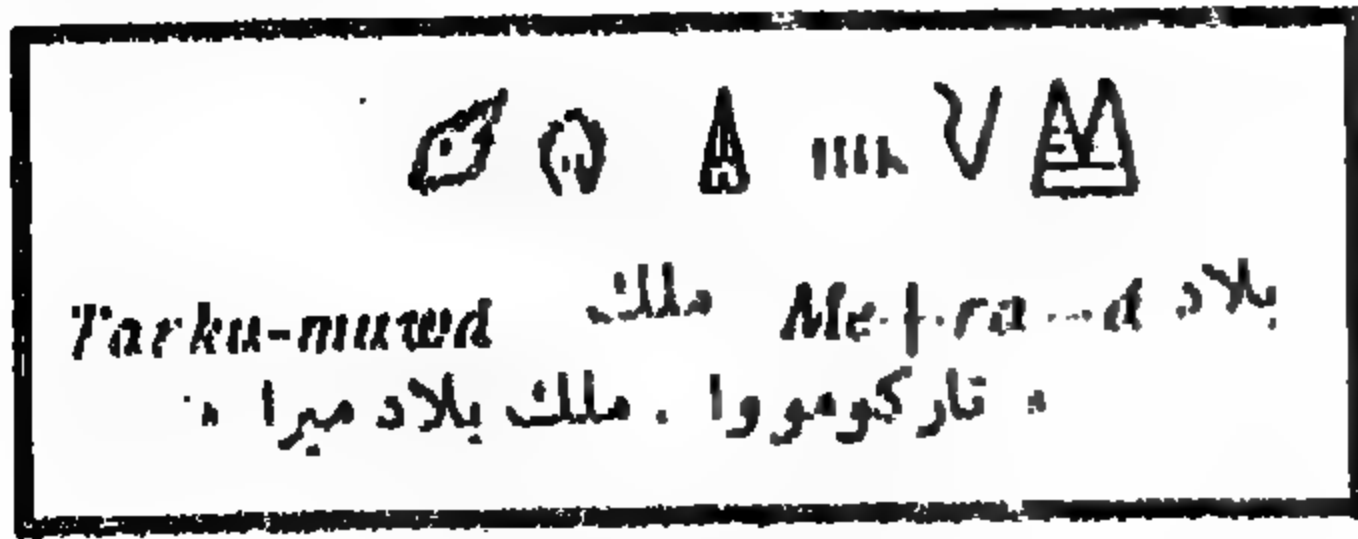 Tarku-muwa ملك Me+ra-a بلاد
« تاركوموا ، ملك بلاد ميرا »